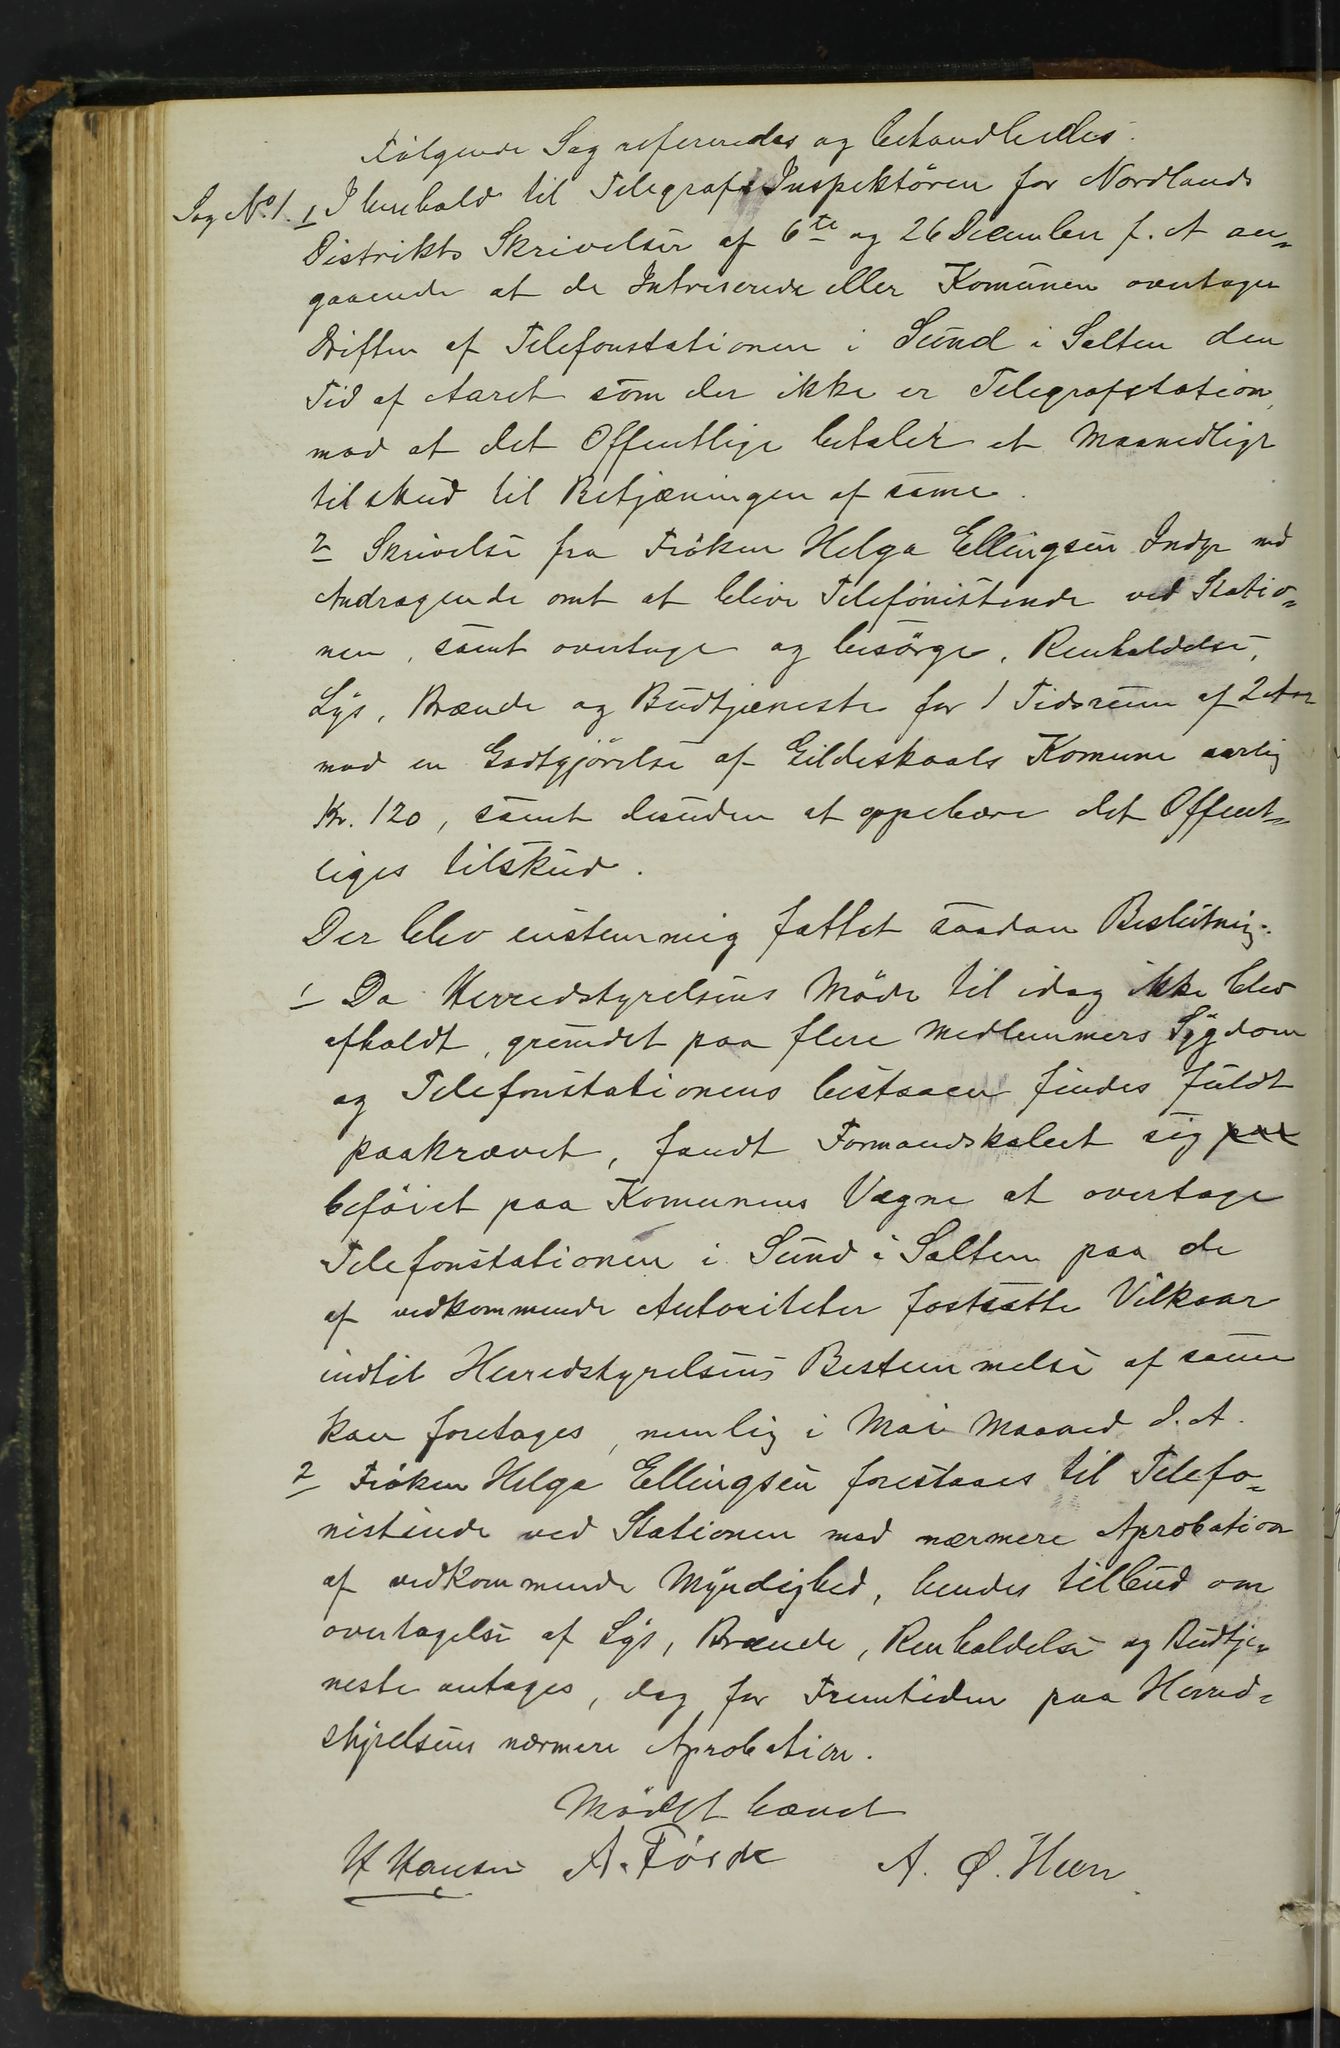 Følgende Sag refereredes og behandledes.
Sag No. 1. 1 I henhold til Telegraf Inspektören for Nordlands
Distrikts Skrivelser af 6te og 26 December f. A an=
gaaende at de Intreserede eller Komunen overtager
Driften af Telefonstationen i Sund i Salten den
Tid af Aaret som der ikke er Telegrafstation,
mod at det Offentlige betaler et Maanedligt
tilskud til Betjæningen af same.
2 Skrivelse fra Frøken Helga Ellingsen Indyr med
Andragende omt at blive Telefonistinde ved Statio=
nen, samt overtage og besörge, Renholdelse,
Lys, Brænde og Budtjæneste for 1 Tidsrum af 2 Aar
mod en Godtgjörelse af Gildeskaals Komune aarlig
Kr. 120, samt desuden at oppebære det Offent=
liges tilskud.
Der blev enstemmig fattet saadan Beslutning:
1 Da Herredstyrelsens Möde til idag ikke blev
afholdt, grundet paa flere Medlemmers Sygdom
og Telefonstationens bestaaen findes fuldt
paakrævet, fandt Formandskabet sig paa
beföiet paa Komunens Vægne at overtage
Telefonstationen i Sund i Salten paa de
af vedkommende Autoriteter fastsatte Vilkaar
indtil Herredstyrelsens Bestemmelse af same
kan foretages, nemlig i Mai Maaned d. A.
2 Frøken Helga Ellingsen forestaaes til Telefo=
nistinde ved Stationen med nærmere Aprobation
af vedkommende Myndighed, hendes tilbud om
overtagelse af Lys, Brænde, Renholdelse og Budtje=
neste antages, dog for Fremtiden paa Herred=
styrelsens nærmere Aprobation.
Mödet hævet
H Hansen A. Förde A. Ø. Heen